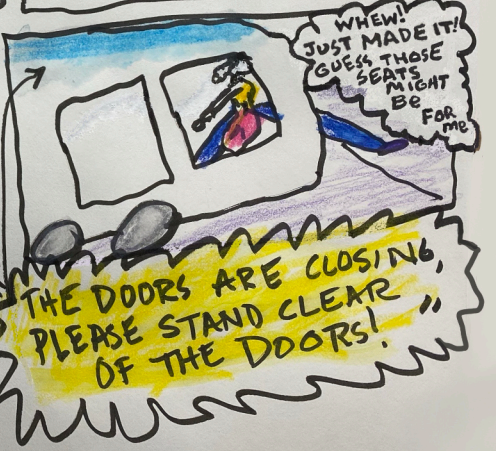 WHEW!
JUST MADE IT!
GUESS THOSE
SEATS
MIGHT
BE
FOR
me
THE DOORS ARE CLOSING,
PLEASE STAND CLEAR
OF THE DOORS!"